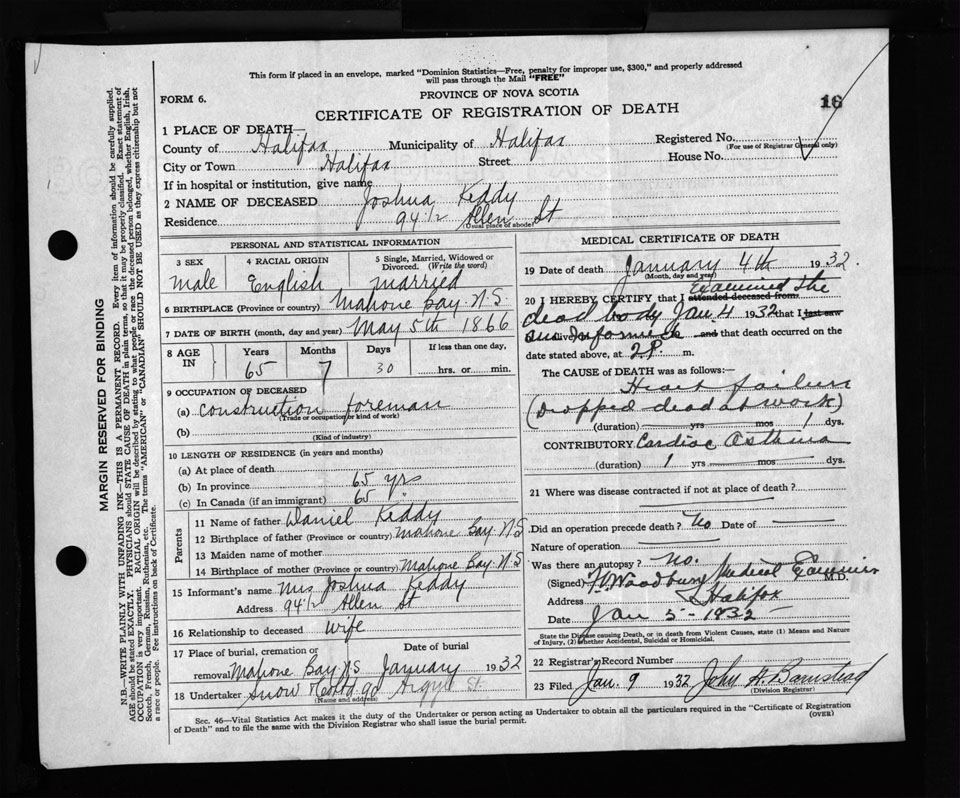 This form if placed in an envelope, marked "Dominion Statistics—Free, penalty for improper use, $300," and properly addressed
will pass through the Mail "FREE"
FORM 6.
PROVINCE OF NOVA SCOTIA
16
CERTIFICATE OF REGISTRATION OF DEATH
1 PLACE OF DEATH—
County of Halifax Municipality of Halifax Registered No.
(For use of Registrar General only)
City or Town Halifax Street House No.
If in hospital or institution, give name
2 NAME OF DECEASED Joshua Keddy
Residence 94 1/2 Allen St
(Usual place of abode)
PERSONAL AND STATISTICAL INFORMATION
3 SEX
4 RACIAL ORIGIN
5 Single, Married, Widowed or
Divorced. (Write the word)
male English married
6 BIRTHPLACE (Province or country) Mahone Bay N.S.
7 DATE OF BIRTH (month, day and year) May 5th 1866
8 AGE IN
Years Months Days If less than one day,
65 7 30 hrs. or min.
9 OCCUPATION OF DECEASED
(a) Construction foreman
(Trade or occupation or kind of work)
(b)
(Kind of industry)
10 LENGTH OF RESIDENCE (in years and months)
(a) At place of death
(b) In province 65 yrs
(c) In Canada (if an immigrant) 65
Parents
11 Name of father Daniel Keddy
12 Birthplace of father (Province or country) Mahone Bay N.S
13 Maiden name of mother
14 Birthplace of mother (Province or country) Mahone Bay N.S
15 Informant's name Mrs Joshua Keddy
Address 94 1/2 Allen St
16 Relationship to deceased wife
17 Place of burial, cremation or Date of burial
removal Mahone Bay NS January 1932
18 Undertaker Snow 90 Argyle St
(Name and address)
MEDICAL CERTIFICATE OF DEATH
19 Date of death January 4th 1932.
(Month, day and year)
20 I HEREBY CERTIFY that I attended deceased from Examined the
dead body Jan 4 1932 that I last saw
am Informed alive and that death occurred on the
date stated above, at 2 P. m.
The CAUSE OF DEATH was as follows:—
Heart failure
(Dropped dead at work)
(duration) yrs mos dys.
CONTRIBUTORY Cardiac Asthma
(duration) 1 yrs mos dys.
21 Where was disease contracted if not at place of death?
Did an operation precede death? No Date of
Nature of operation
Was there an autopsy? No.
(Signed) Woodbury Medical Examiner M.D.
Address Halifax
Date Jan 5 - 1932
State the Disease causing Death, or in death from Violent Causes, state (1) Means and Nature
of Injury, (2) whether Accidental, Suicidal or Homicidal.
22 Registrar's Record Number
23 Filed Jan. 9 1932 John H. Barnstead
(Division Registrar)
Sec. 46—Vital Statistics Act makes it the duty of the Undertaker or person acting as Undertaker to obtain all the particulars required in the "Certificate of Registration
of Death" and to file the same with the Division Registrar who shall issue the burial permit. (OVER)
MARGIN RESERVED FOR BINDING
N.B.—WRITE PLAINLY WITH UNFADING INK—THIS IS A PERMANENT RECORD. Every item of information should be carefully supplied.
AGE should be stated EXACTLY. PHYSICIANS should STATE CAUSE OF DEATH in plain terms, so that it may be properly classified. Exact statement of
OCCUPATION is very important. RACIAL ORIGIN will be described by stating to what people or race the deceased person belonged, whether English, Irish,
Scotch, French, German, Russian, Ruthenian, etc. The terms "AMERICAN" or "CANADIAN" SHOULD NOT BE USED as they express citizenship but not
a race or people. See instructions on back of Certificate.